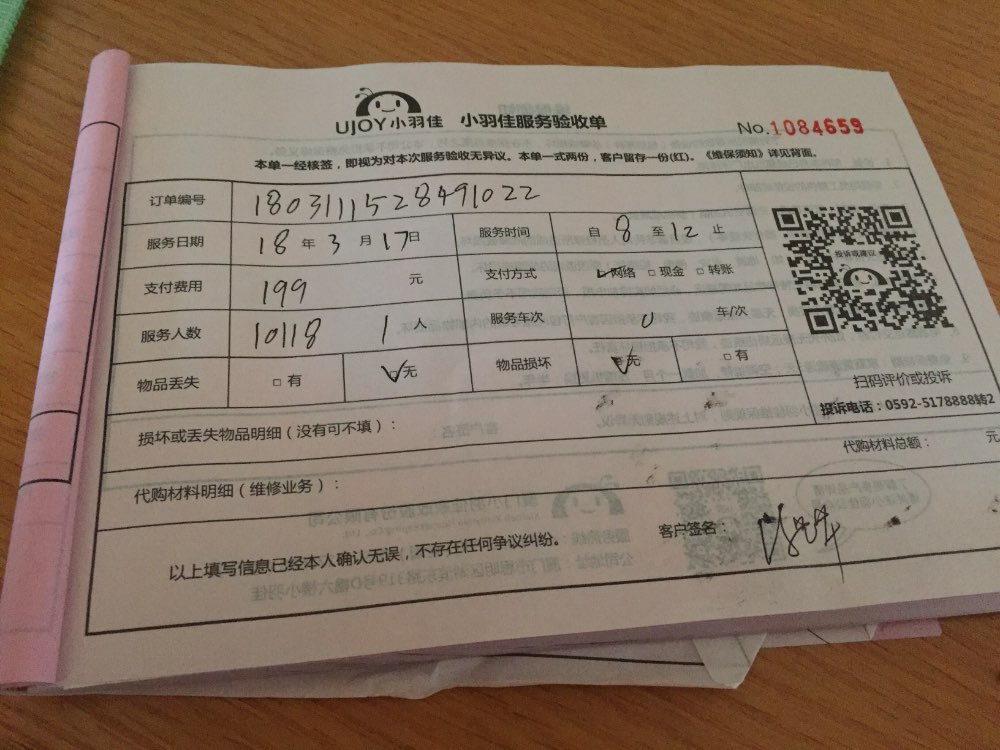 UJOY小羽佳 小羽佳服务验收单
No.1084659
本单一经核签，即视为对本次服务验收无异议。本单一式两份，客户留存一份(红)。《维保须知》详见背面。
订单编号 1803111528491022
服务日期 18 年 3 月 17 日 服务时间 自 8 至 12 止
支付费用 199 元 支付方式 网络 □ 现金 □ 转账
服务人数 10118 1 人 服务车次 0 车/次
物品丢失 □ 有 无 物品损坏 无 □ 有
投诉或建议
扫码评价或投诉
投诉电话：0592-5178888转2
损坏或丢失物品明细（没有可不填）：
代购材料总额： 元
代购材料明细（维修业务）：
以上填写信息已经本人确认无误，不存在任何争议纠纷。 客户签名：